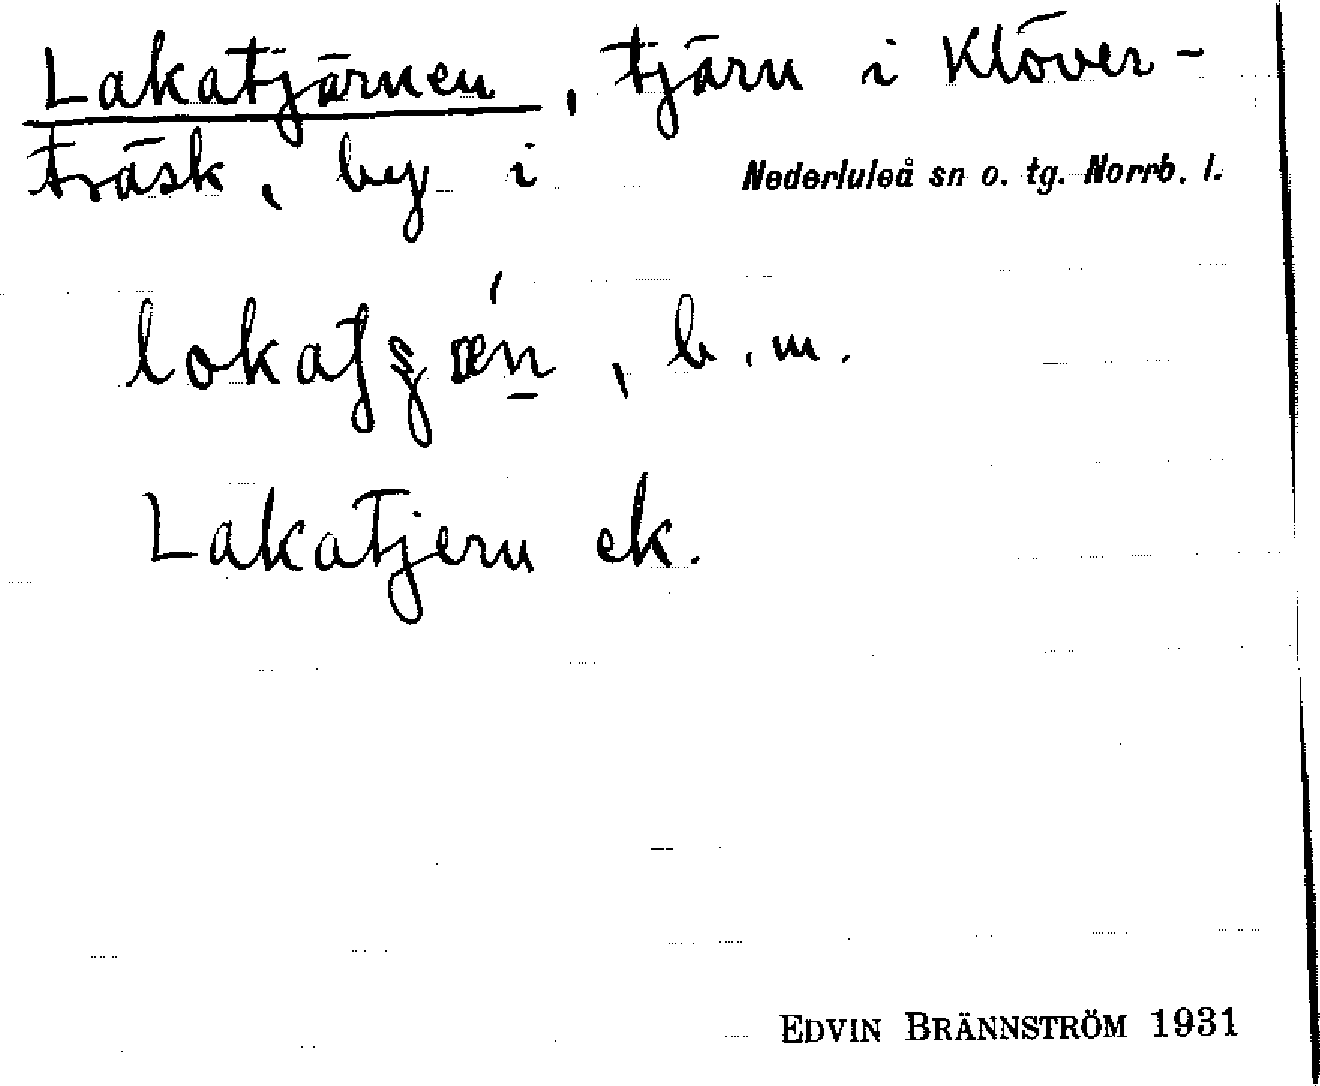 Lakatjärnen, tjärn i Klöver-
träsk, by i Nederluleå sn o. tg. Norrb. l.
, b. m.
Lakatjern ek.
EDVIN BRÄNNSTRÖM 1931